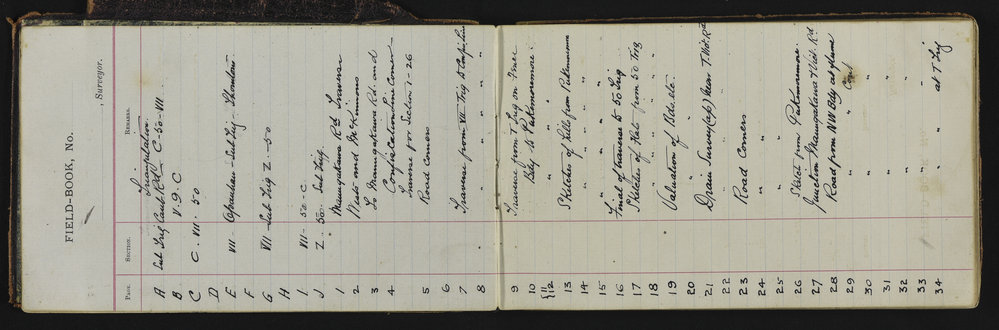 FIELD-BOOK, No.
, Surveyor.
PAGE. SECTION. REMARKS.
Triangulation
A Sub Trig C-50-VII
B V. 9. C
C C. VII. 50
D
E VII - Sub Trig -
F
G VII - Sub Trig Z - 50
H
I VII - 50 - C.
J Z. 50. Sub Trig.
1 Maungakawa Rd Traverse
2 Mests and McKinnons
3 To Maungakawa Rd. and
4 Confiscation Line Corner
Traverse for Section 1-26
5 Road Corners
6 "
7 Traverse from VII Trig to
8 " "
9 Traverse from T Trig on Fence
10 Bdy to Pukemoremore
{11
12 " "
13 Sketches of hills from Pukemoremore
14 " "
15 " "
16 Final of traverse to 50 Trig
17 Sketches of flats from 50 Trig
18 " "
19 Valuation of Bdr. etc.
20 "
21 Drain Survey (ap) near T. Wst. Rd
22 "
23 Road Corners
24 "
25 " "
26 Sketch from Pukemoremore
27 Junction Maungakawa & Wst. Rd
28 Road from NW Bdy at flume
29 " Cont
30 " "
31 " "
32 " "
33 " "
34 " " at T Trig